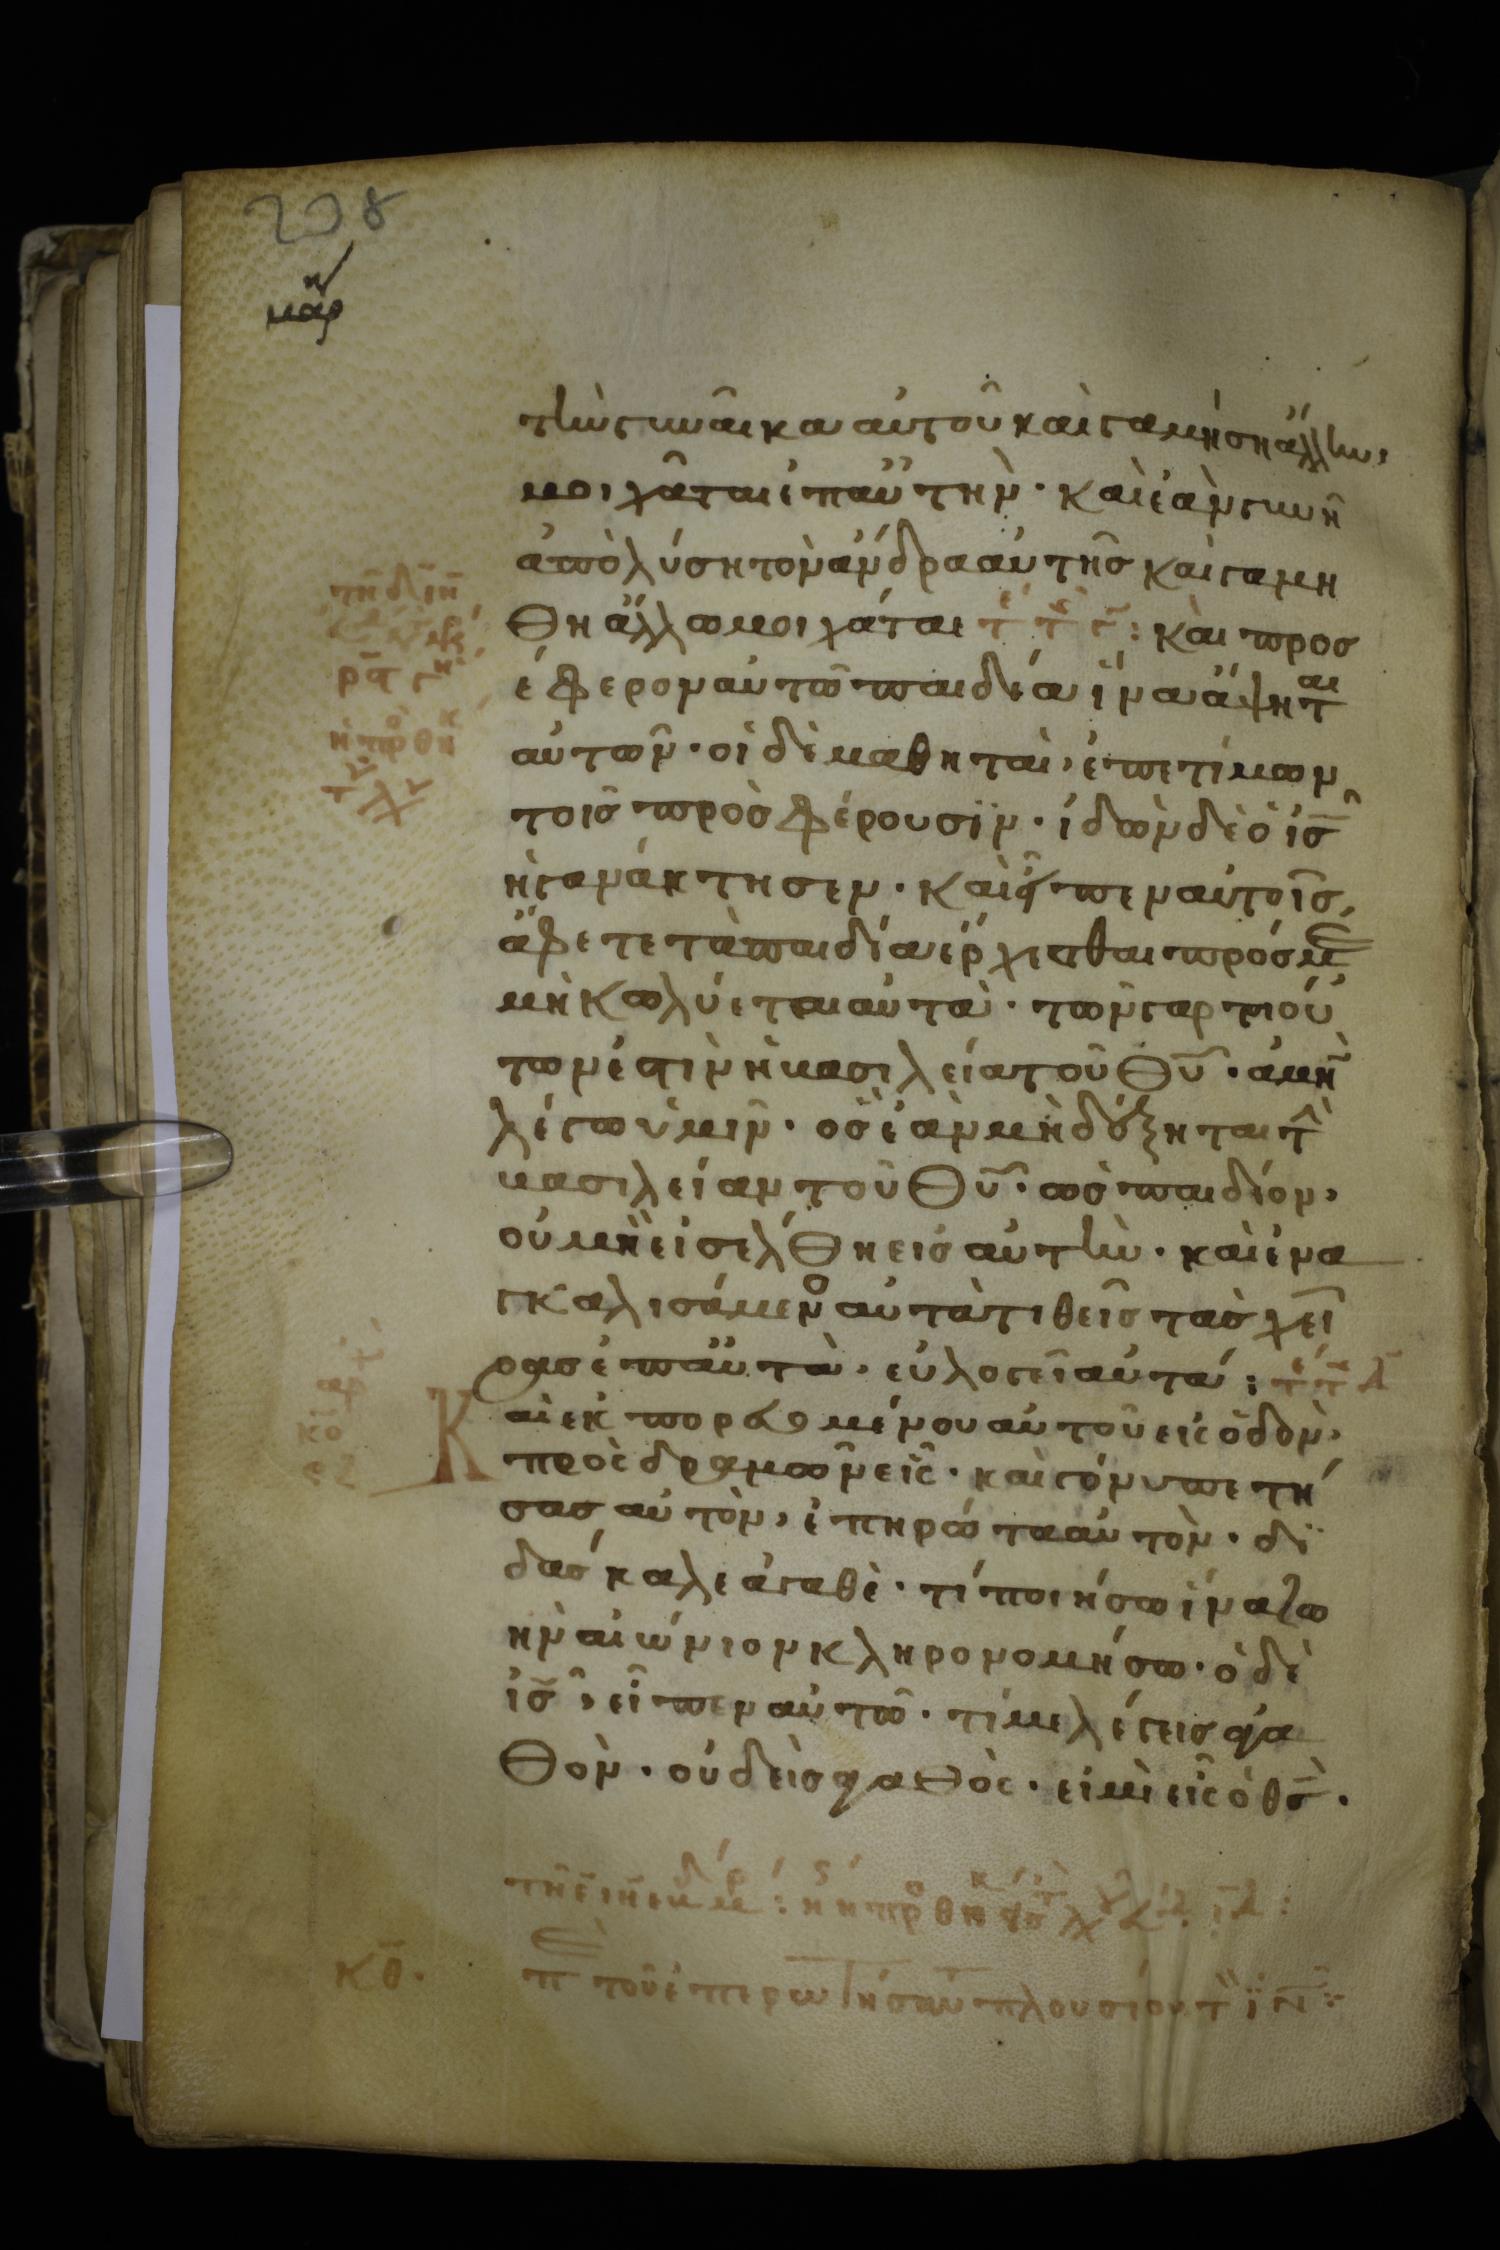 208
τὴν γυναῖκα αὐτοῦ καὶ γαμήση ἄλλην,
μοιχᾶται ἐπ αὐτὴν · καὶ ἐὰν γυνὴ
ἀπὸλύση τὸν ἄνδρα αὐτῆς καὶ γαμη
θη ἄλλω μοιχάται : καὶ προσ
έφερον αὐτῶ παιδία ἵνα ἄψηται
αὐτῶν · οἱ δὲ μαθηταὶ, ἐπετίμων
τοῖς προσφέρουσϊν · ἰδὼν δὲ ὁ ἰς
ἠγανάκτησεν · καὶ εἶπεν αὐτοῖς,
ἄφετε τὰ παιδία έρχεσθαι πρός με
μὴ κωλύεται αὐτὰ · τῶν γαρ τοιού
των έστιν ἡ βασιλεία τοῦ θυ · ἀμὴν
λέγω ὑμῖν · ὃς ἐὰν μὴ δέξηται τὴν
βασιλείαν τοῦ θυ · ὡς παιδίον,
οὐ μὴ εἰσέλθη εἰς αὐτὴν · καὶ ἐνα
γκαλισάμενος αὐτὰ τιθεῖς τὰς χεῖ
ρας ἐπ αὐτὰ · εὐλογεῖ αὐτά :
Καὶ ἐκπορευομένου αὐτοῦ εἰς ὁδὸν,
προσδραμὼν εἷς · καὶ γόνυπετή
σας αὐτὸν, ἐπηρώτα αὐτὸν · δϊ
δάσκαλε ἀγαθὲ · τί ποιήσω ἵνα ζω
ὴν αἰώνιον κληρονομήσω · ὁ δὲ
ἰς, εἶπεν αὐτῶ · τί με λέγεις ἀγα
θὸν · οὐδεὶς ἀγαθὸς · εἰ μὶ εἷς ὁ θς ·
κθ · π τοῦ ἐπερωτήσαν πλουσίου τ ιν